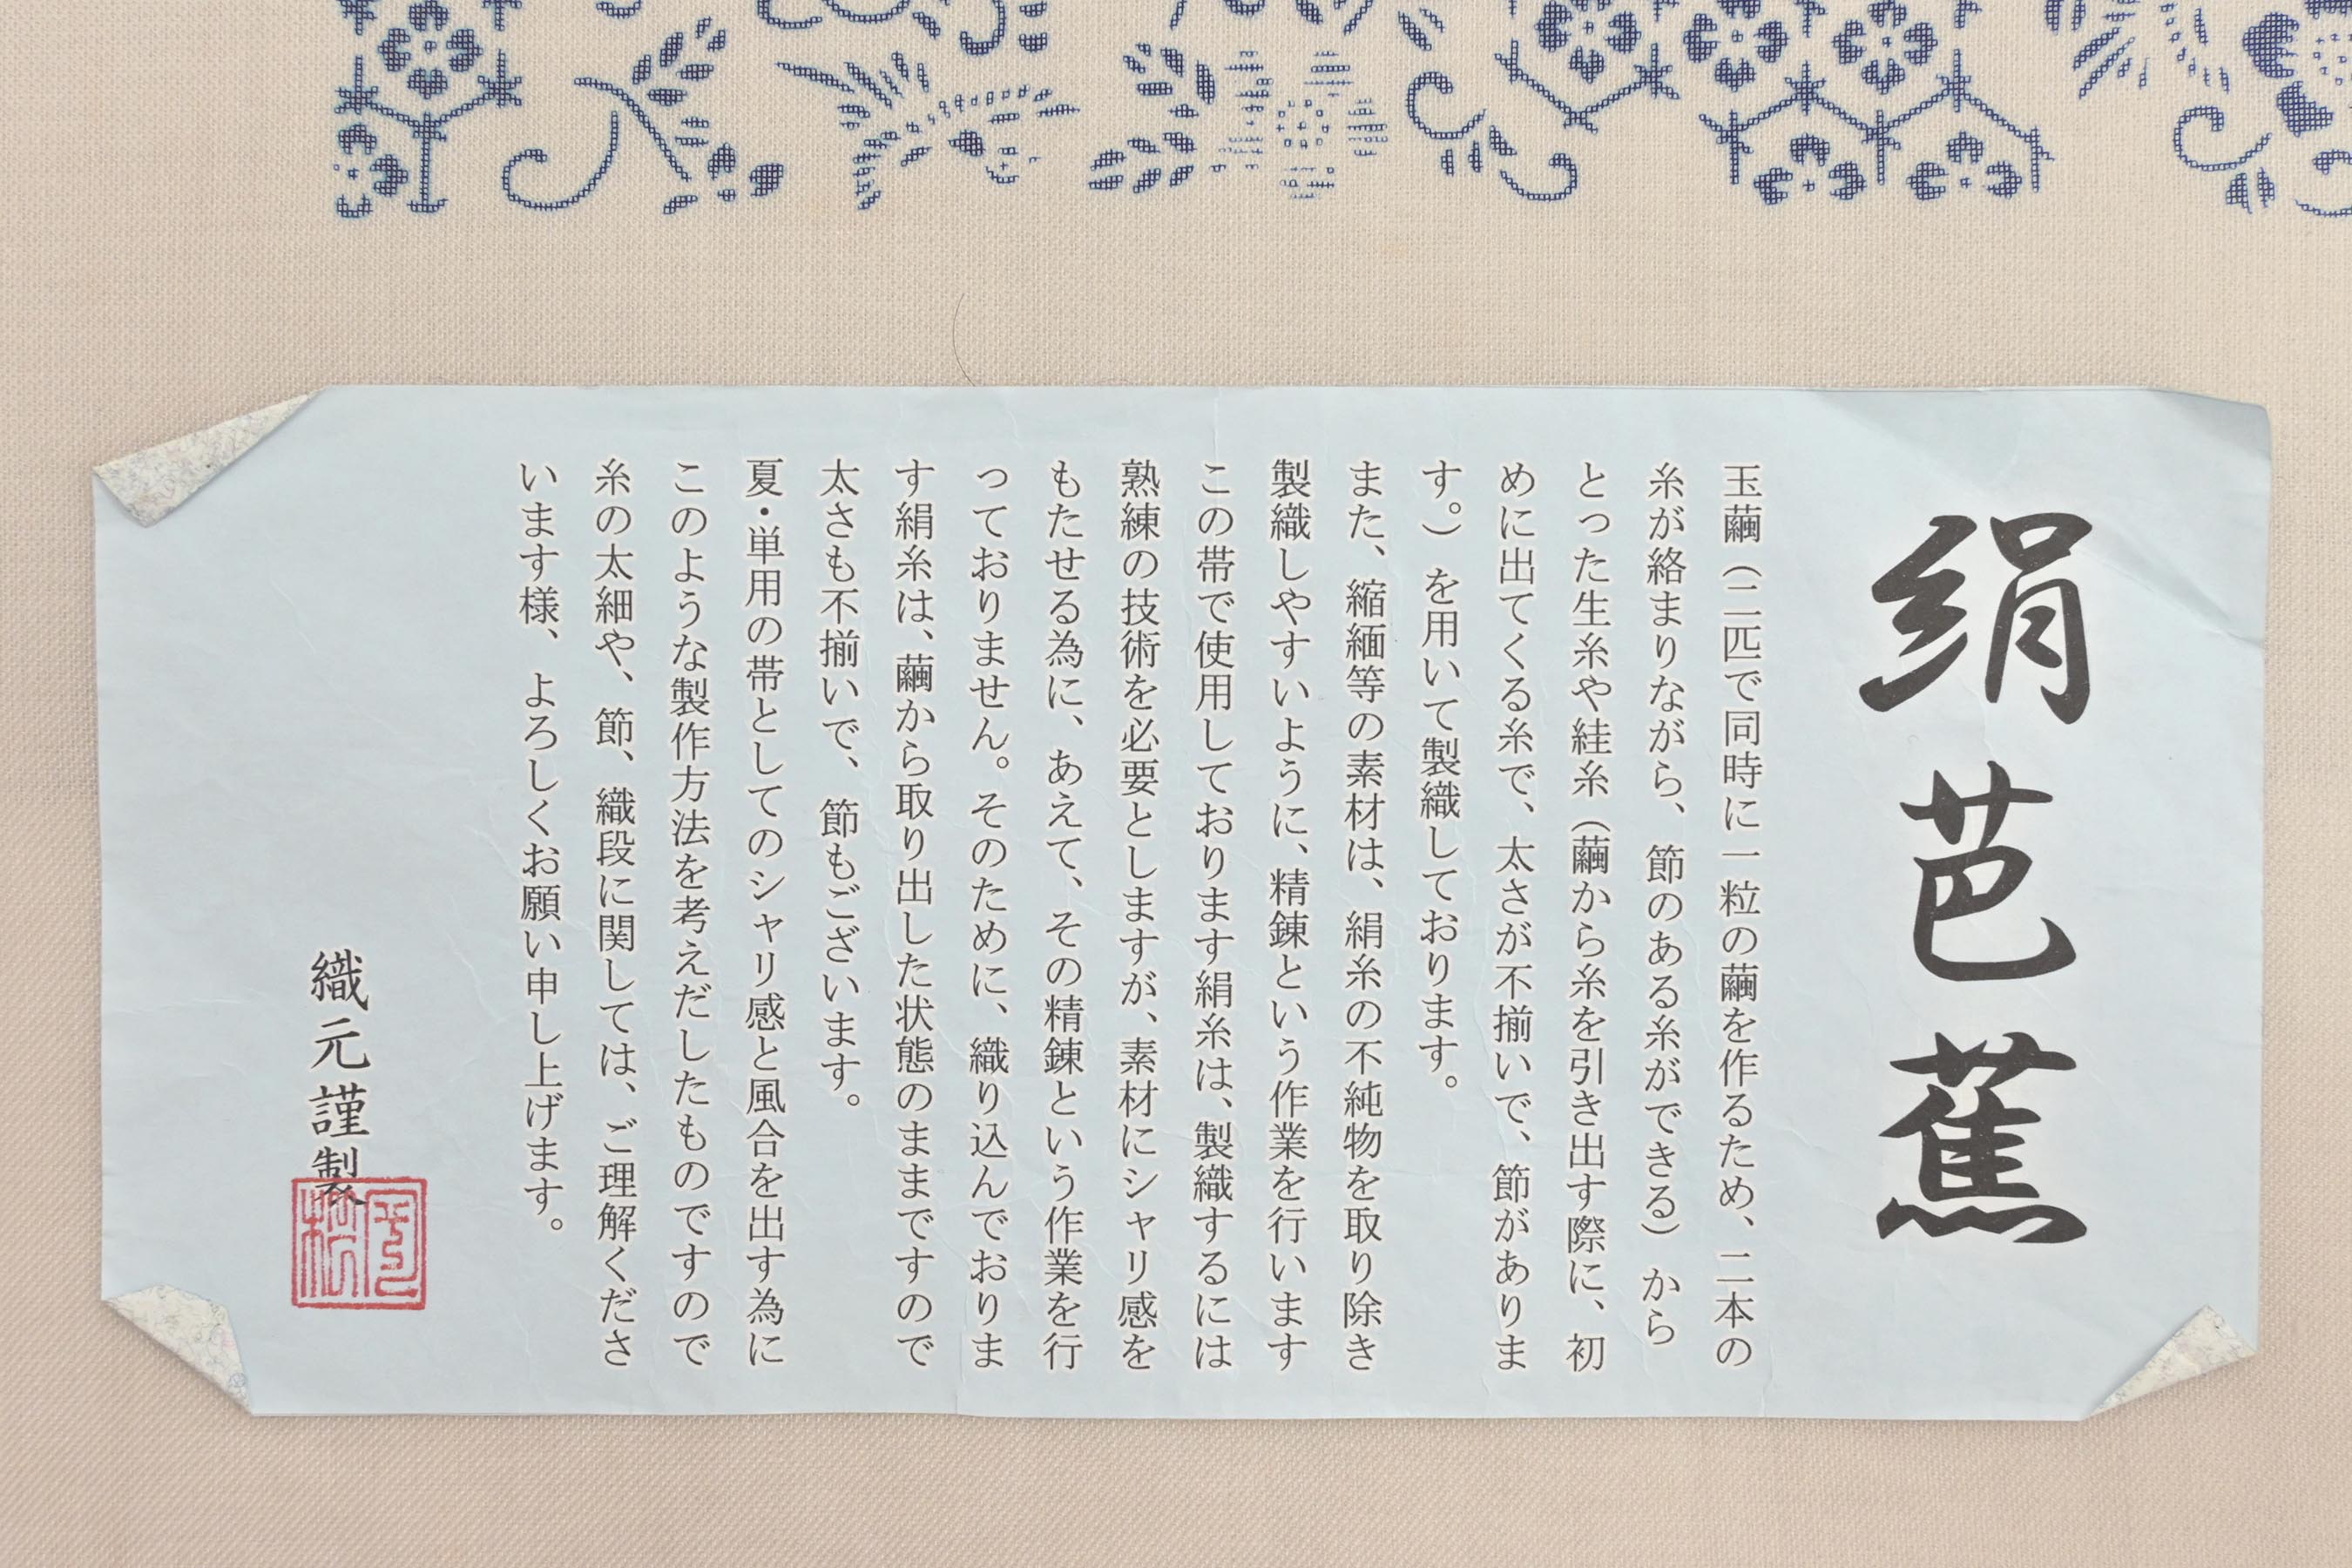 絹芭蕉
玉繭（二匹で同時に一粒の繭を作るため、二本の
糸が絡まりながら、節のある糸ができる）から
とった生糸や絓糸（繭から糸を引き出す際に、初
めに出てくる糸で、太さが不揃いで、節がありま
す。）を用いて製織しております。
また、縮緬等の素材は、絹糸の不純物を取り除き
製織しやすいように、精錬という作業を行います
この帯で使用しております絹糸は、製織するには
熟練の技術を必要としますが、素材にシャリ感を
もたせる為に、あえて、その精錬という作業を行
っておりません。そのために、織り込んでおりま
す絹糸は、繭から取り出した状態のままですので
太さも不揃いで、節もございます。
夏・単用の帯としてのシャリ感と風合を出す為に
このような製作方法を考えだしたものですので
糸の太細や、節、織段に関しては、ご理解くださ
います様、よろしくお願い申し上げます。
織元謹製